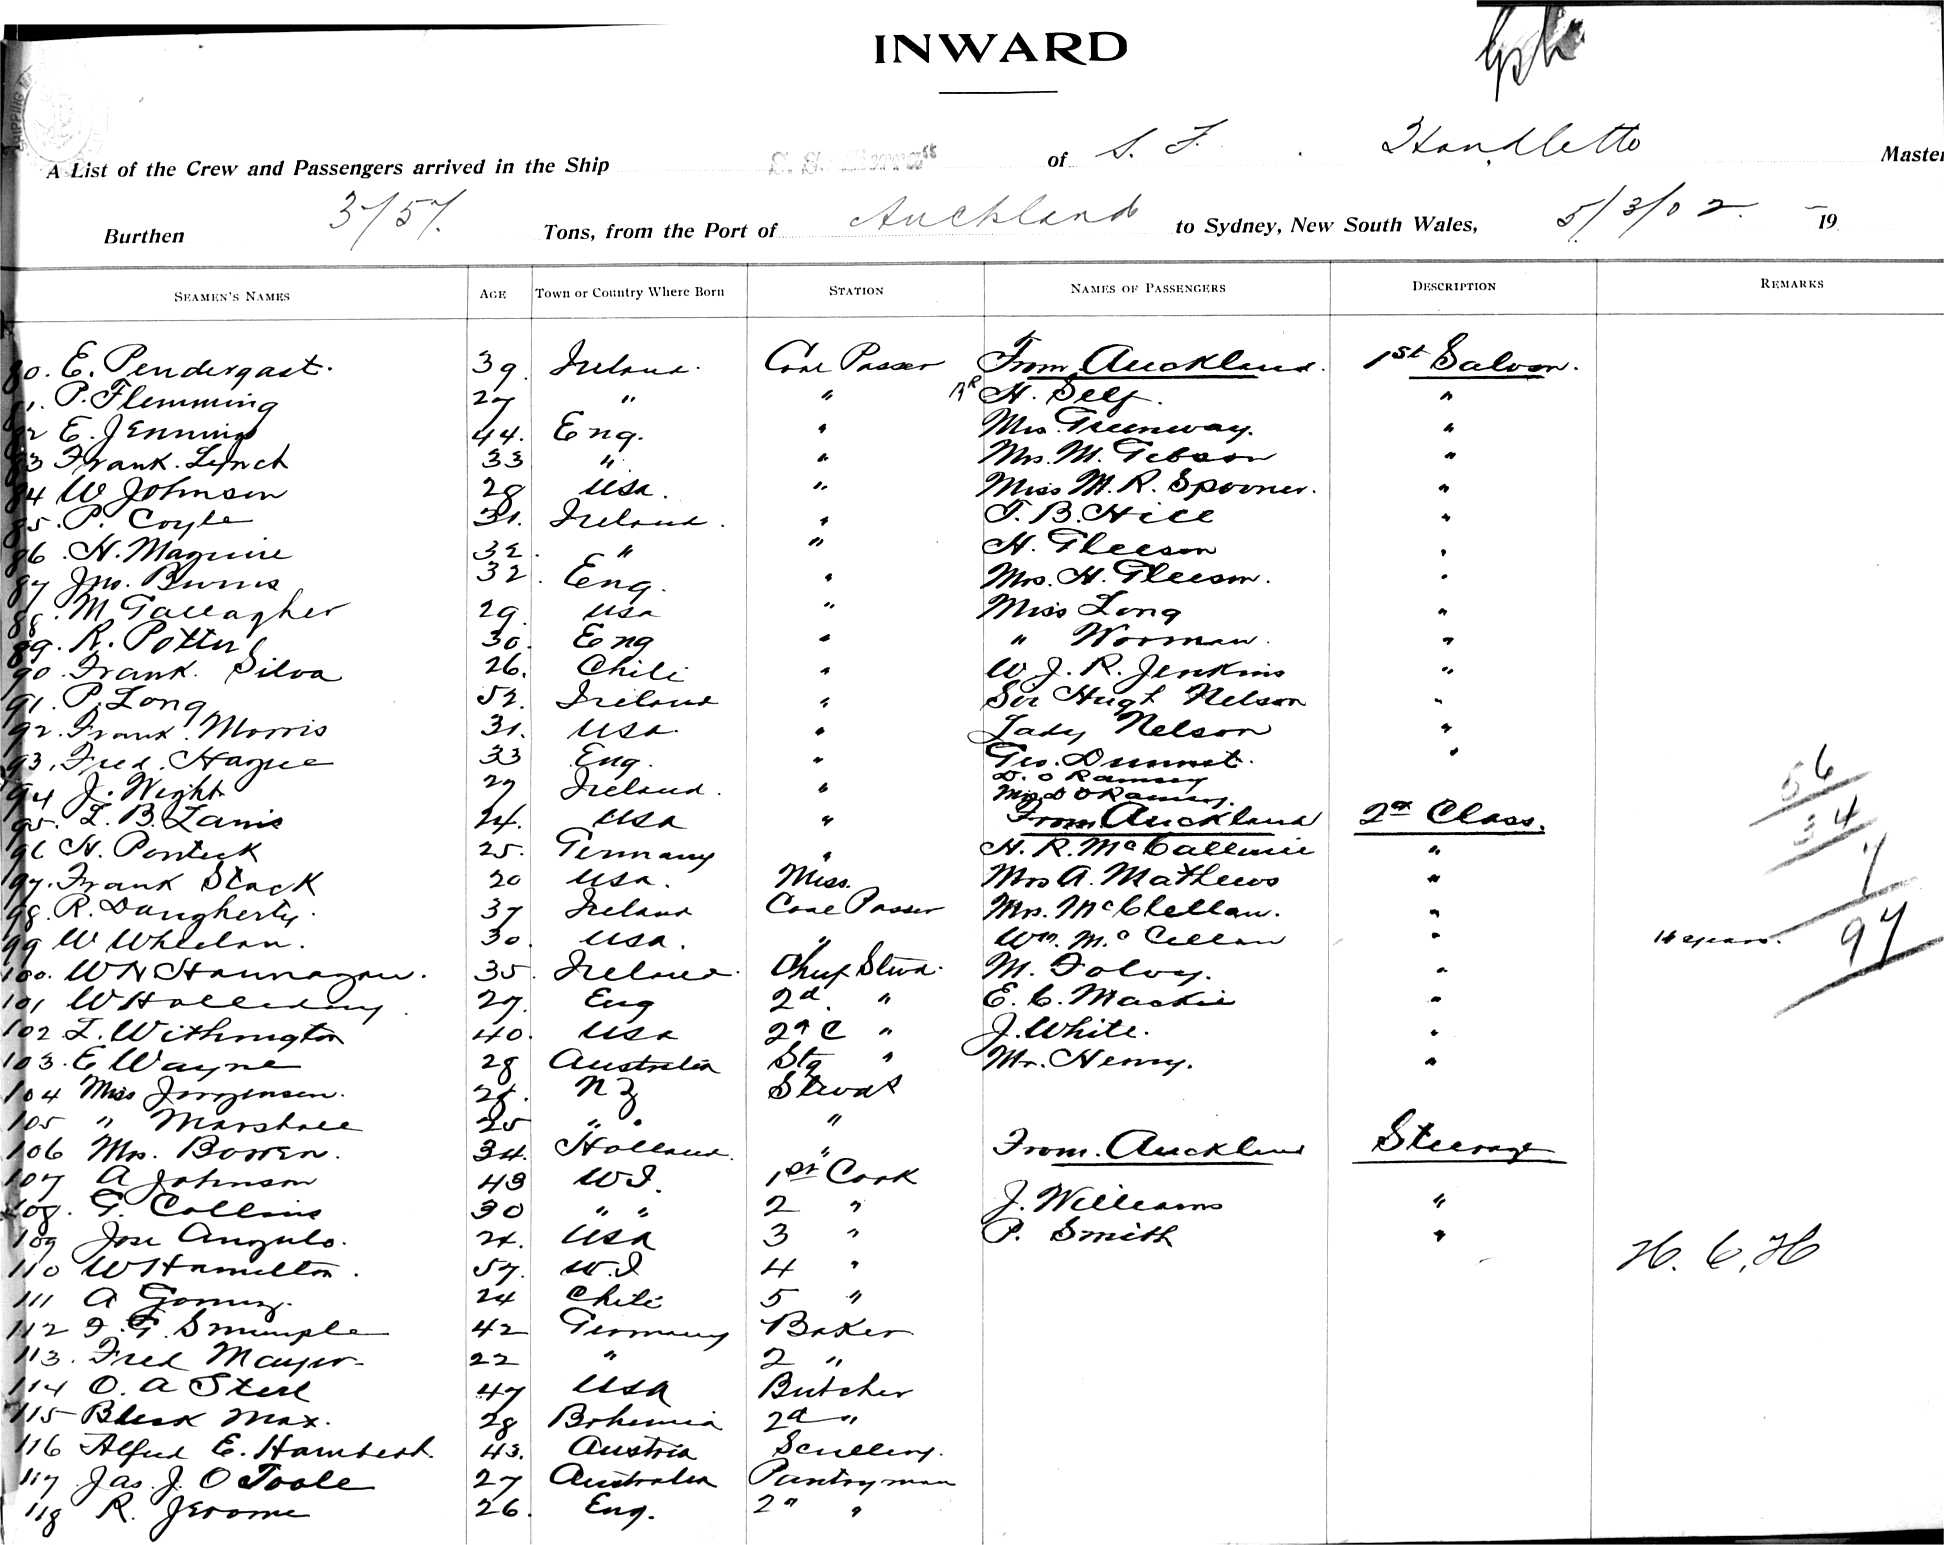 INWARD
A List of the Crew and Passengers arrived in the Ship of S. F. Master
Burthen 3157. Tons, from the Port of Auckland to Sydney, New South Wales, 5/3/02. 19
SEAMEN'S NAMES AGE Town or Country Where Born STATION NAMES OF PASSENGERS DESCRIPTION REMARKS
80. E. Pendergast. 39. Ireland. Coal Passer From Auckland. 1st Saloon.
81. P. Flemming 27 " " H. Self. "
82 E. Jennings 44. Eng. " Mrs. Greenway. "
83 Frank. Lynch 33 " " Mrs. M. Gibson "
84 W Johnson 28 USA. " Miss M. R. Spooner. "
85. P. Coyle 31. Ireland. " T. B. Hill "
86. H. Maguire 32. " " H. Gleeson "
87 Jno. Burns 32. Eng. " Mrs. H. Gleeson. "
88. M Gallagher 29. USA " Miss Long "
89. R. Potter 30. Eng " " Worman. "
90. Frank. Silva 26. Chili " W J. R. Jenkins "
91. P. Long 52. Ireland " Sir Hugh Nelson "
92. Frank. Morris 31. USA. " Lady Nelson "
93. Fred. Hague 33 Eng. " Geo. "
94 J. Wight 27 Ireland. " D. O Ramsey
Mrs D O Ramsey.
95. L. B. 24. USA " From Auckland 2nd Class.
96 H. 25. Germany " H. R. "
97. Frank Stack 20 USA. Mess. Mrs A. Mathews "
98. R. Daugherty. 37 Ireland Coal Passer Mrs. McClellan. "
99 W Whelan. 30. USA. " Wm. "
100. W H Hannagan. 35. Ireland. Chief Stwd. M. "
101 W Holliday. 27. Eng 2d. " E. C. Mackie "
102 L. Withington 40. USA 2d C " J. White. "
103. E Wayne 28 Australia Stg " Mr. Henry. "
104 Miss Jorgensen. NZ
105 " Marshall 25 " " "
106 Mrs. 34. Holland. " From. Auckland Steerage
107 A Johnson 43 W I. 1st Cook
108. G. Collins 30 " " 2 " J. Williams "
109 Jose Angulo. 24. USA 3 " P. Smith "
110 W Hamilton. 57. W. I 4 "
111 A Gomez. 24 Chili 5 "
112 42 Germany Baker
113. Fred Mayer 22 " 2 "
114 O. A 47 USA Butcher
115 Max. 28 Bohemia 2d "
116 Alfred E. 43. Austria Scullery.
117 Jas. J. O Toole 27 Australia Pantryman
118 R. Jerome 26. Eng. 2d "
56
34
7
97